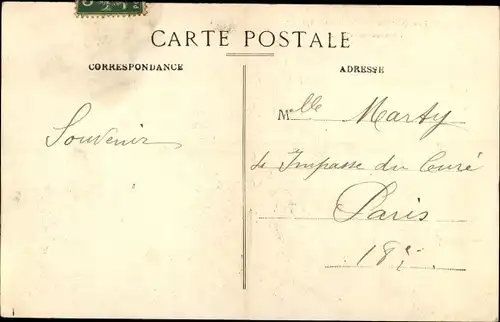 CARTE POSTALE
CORRESPONDANCE
ADRESSE
Souvenir
Mlle Marty
Impasse du Curé
Paris
18e